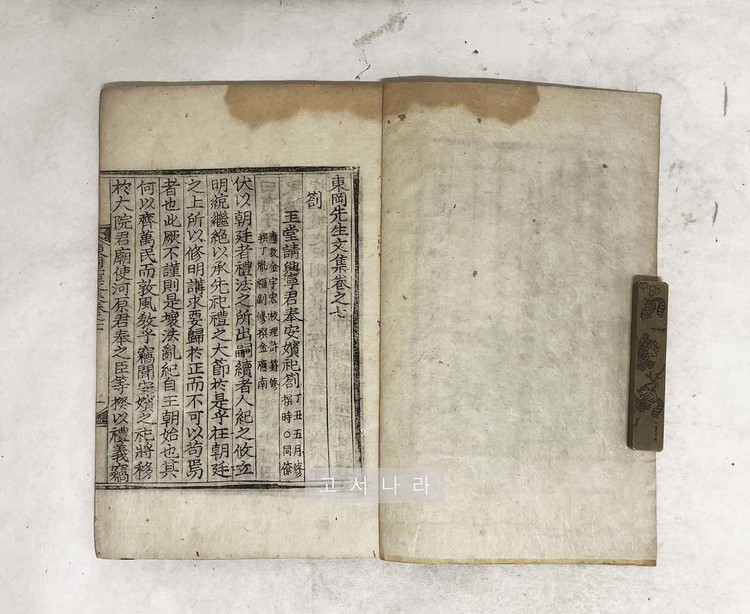 東岡先生文集卷之七
劄
玉堂請興寧君奉安嬪祀劄 丁丑五月修撰時○同僚
應敎金宇宏校理許篈修
撰丁胤福副修撰金應南
伏以朝廷者禮法之所出嗣續者人紀之攸立
明統繼絶以承先祀禮之大節於是乎在朝廷
之上所以修明講求要歸於正而不可以苟焉
者也此厥不謹則是壞法亂紀自王朝始也其
何以齊萬民而敦風敎乎竊聞安嬪之祀將移
於大院君廟使河原君奉之臣等揆以禮義竊
고서나라